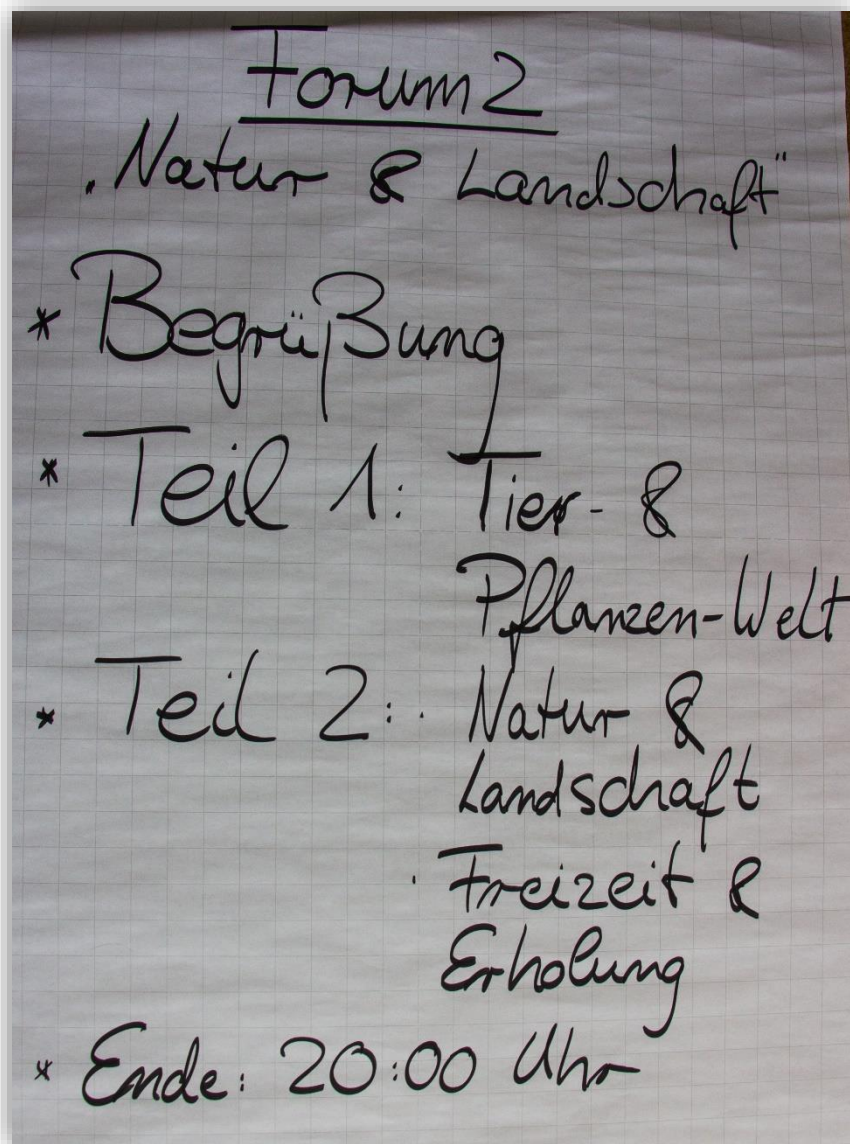 Forum 2
„Natur & Landschaft“
* Begrüßung
* Teil 1: Tier- &
Pflanzen-Welt
* Teil 2: · Natur &
Landschaft
· Freizeit &
Erholung
* Ende: 20:00 Uhr